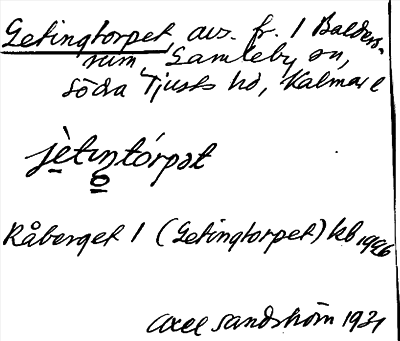 Getingtorpet avs. fr. 1 Balders-
rum, Gamleby sn,
södra Tjusts hd, Kalmar l
jètiŋtórpat
Råberget 1 (Getingtorpet) kb 1946
Axel Sandström 1931